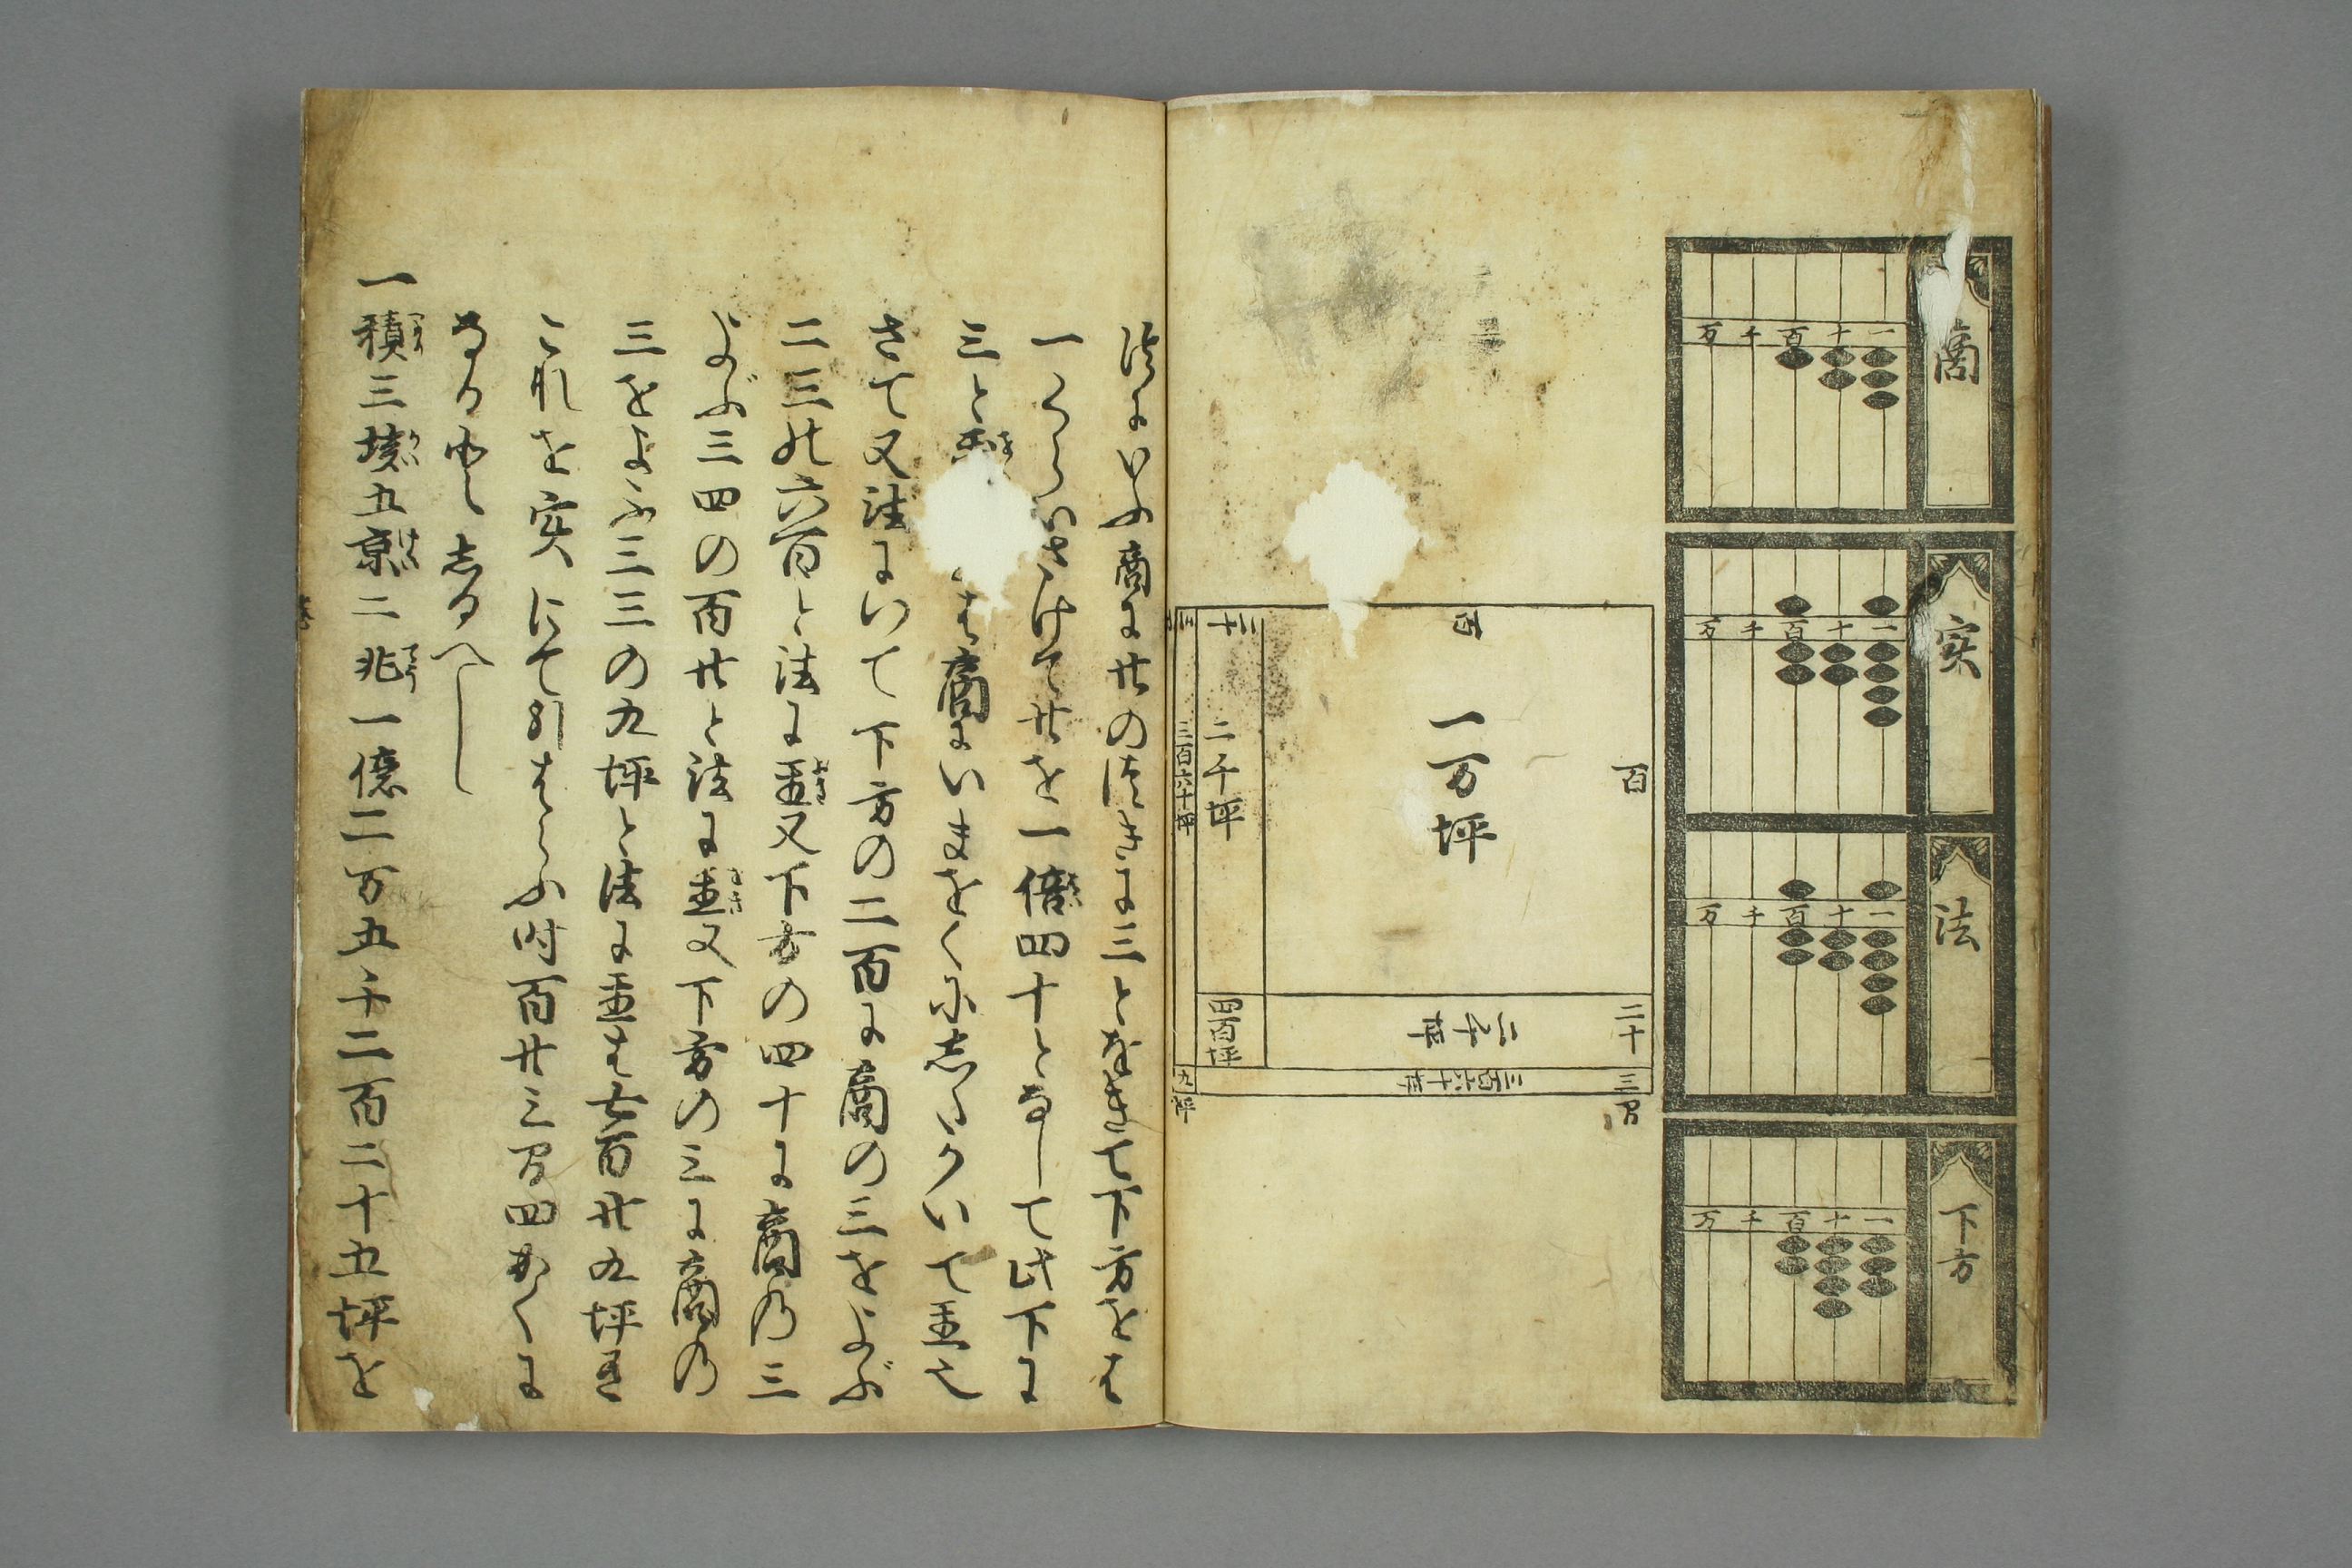 商
一 十 百 千 万
実
一 十 百 千 万
法
一 十 百 千 万
下方
一 十 百 千 万
百
二十
三間
百
一万坪
二千坪
三百六十坪
二十
二千坪
四百坪
三
三百六十坪
九坪
商に廿のつきに三とをきて下方をは
一くらいさけて廿を一倍四十となして此下に
三と
は商にいまをくにしたかいて置也
さて又法にいて下方の二百に商の三をよぶ
二三の六百と法に置又下方の四十に商の三
よぶ三四の百廿と法に置又下方の三に商の
三をよふ三三の九坪と法に置は七百廿九坪有
これを実にて引はらふ時百廿三間四方に
なる也としるへし
一積三垓五京二兆一億二万五千二百二十五坪を